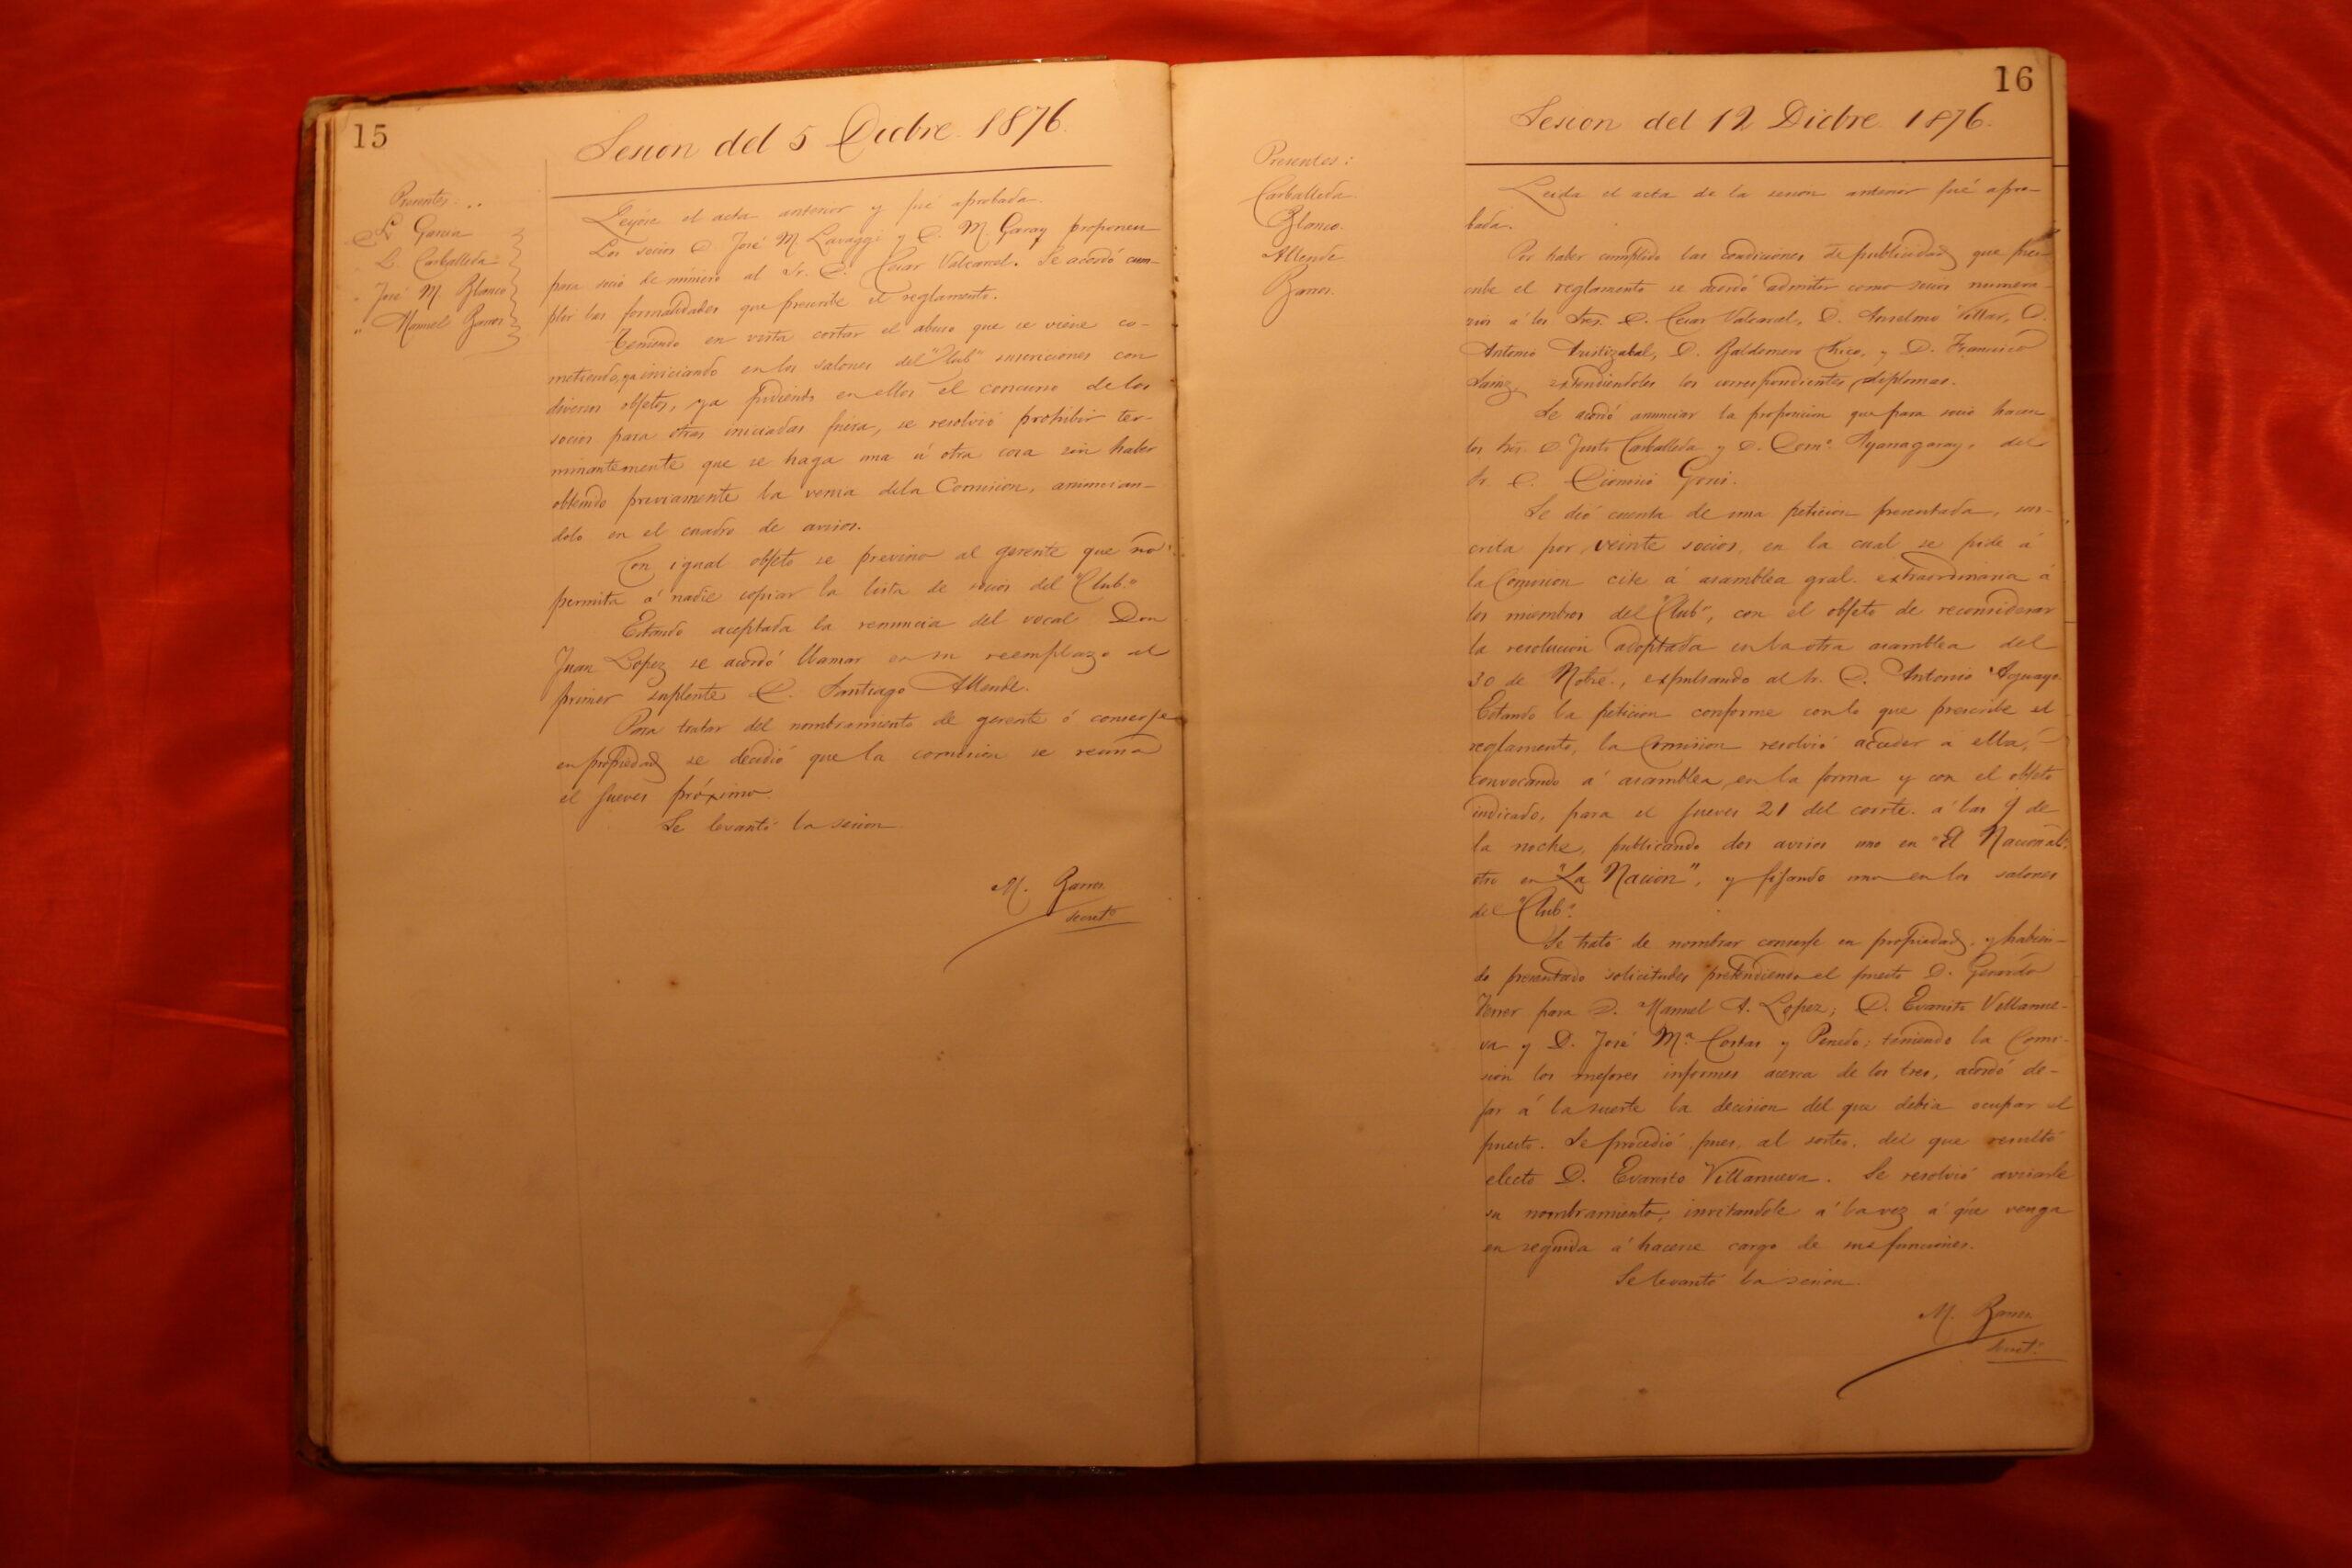 15
Sesion del 5 Dicbre. 1876.
Presentes:
D. L. Garcia
" L. Carballeda
" José M. Blanco
" Manuel Barros
Leyóse el acta anterior y fué aprobada.
Los socios D. José M. Lavaggi y D. M. Garay proponen
para socio de número al Sr. D. Cesar Valcarcel. Se acordó cum-
plir las formalidades que prescribe el reglamento.
Teniendo en vista cortar el abuso que se viene co-
metiendo, ya iniciando en los salones del "Club" suscriciones con
diversos objetos, ya pidiendo en ellos el concurso de los
socios para otras iniciadas fuera, se resolvió prohibir ter-
minantemente que se haga una ú otra cosa sin haber
obtenido previamente la venia de la Comision, anuncian-
dolo en el cuadro de avisos.
Con igual objeto se previno al gerente que no
permita á nadie copiar la lista de socios del "Club."
Estando aceptada la renuncia del vocal Don
Juan Lopez se acordó llamar en su reemplazo al
primer suplente D. Santiago Allende.
Para tratar del nombramiento de gerente ó conserje
en propiedad se decidió que la comision se reuna
el jueves próximo.
Se levantó la sesion.
M. Barros
secret.o
16
Sesion del 12 Dicbre 1876.
Presentes:
Carballeda
Blanco.
Allende
Barros.
Leida el acta de la sesion anterior fué apro-
bada.
Por haber cumplido las condiciones de publicidad que pres-
cribe el reglamento se acordó admitir como socios numera-
rios á los Sres. D. Cesar Valcarcel, D. Anselmo Villar, D.
Antonio Aristizabal, D. Baldomero Chico, y D. Francisco
Sainz, extendiendoles los correspondientes diplomas.
Se acordó anunciar la proposicion que para socio hacen
los Sres. D. Justo Carballeda y D. Dom.o Ayarragaray, del
Sr. D. Dionisio Goñi.
Se dió cuenta de una peticion presentada, sus-
crita por veinte socios, en la cual se pide á
la Comision cite á asamblea gral. extraordinaria á
los miembros del "Club", con el objeto de reconsiderar
la resolucion adoptada en la otra asamblea del
30 de Nobre., expulsando al Sr. D. Antonio Aguayo.
Estando la peticion conforme con lo que prescribe el
reglamento, la Comision resolvió acceder á ella,
convocando á asamblea, en la forma y con el objeto
indicado, para el jueves 21 del corrte. á las 9 de
la noche, publicando dos avisos uno en "El Nacional",
otro en "La Nacion", y fijando uno en los salones
del "Club".
Se trató de nombrar conserje en propiedad, y habien-
do presentado solicitudes pretendiendo el puesto D. Gerardo
Ferrer para D. Manuel A. Lopez; D. Evaristo Villanue-
va y D. José M.a Costas y Penedo; teniendo la Comi-
sion los mejores informes acerca de los tres, acordó de-
jar á la suerte la decision del que debia ocupar el
puesto. Se procedió, pues, al sorteo, del que resultó
electo D. Evaristo Villanueva. Se resolvió avisarle
su nombramiento, invitandole á la vez á que venga
en seguida á hacerse cargo de sus funciones.
Se levantó la sesion.
M. Barros.
secret.o